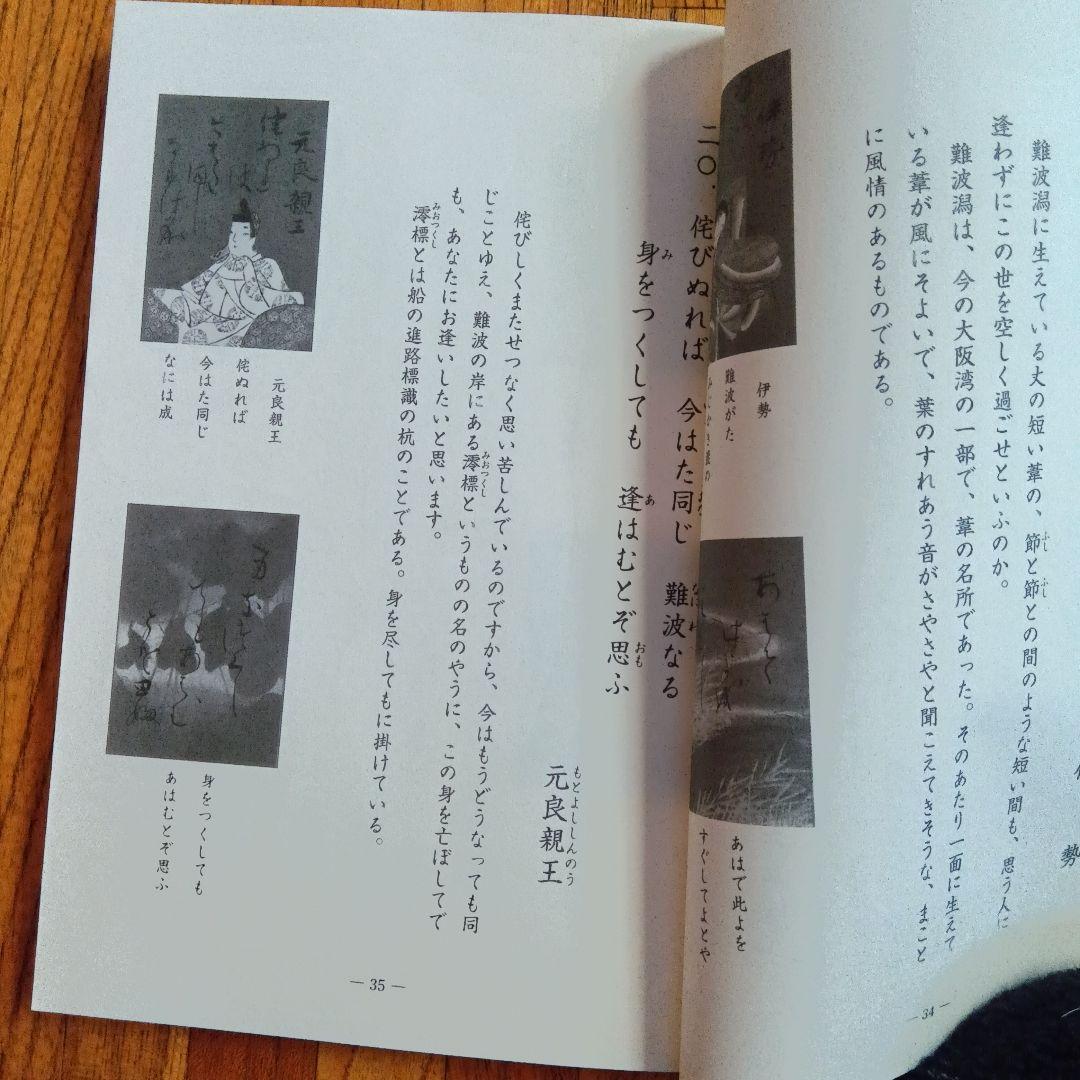 勢
難波潟に生えている丈の短い葦の、節と節との間のような短い間も、思う人に
逢わずにこの世を空しく過ごせといふのか。
難波潟は、今の大阪湾の一部で、葦の名所であった。そのあたり一面に生えて
いる葦が風にそよいで、葉のすれあう音がさやさやと聞こえてきそうな、まこと
に風情のあるものである。
伊勢
難波がた
あはで此よを
すぐしてよとや
― 34 ―
二〇．侘びぬれば　今はた同じ　難波なる
身をつくしても　逢はむとぞ思ふ
元良親王
もとよししんのう
侘びしくまたせつなく思い苦しんでいるのですから、今はもうどうなっても同
じことゆえ、難波の岸にある澪標というものの名のやうに、この身を亡ぼしてで
も、あなたにお逢いしたいと思います。
澪標とは船の進路標識の杭のことである。身を尽してもに掛けている。
元良親王
元良親王
侘ぬれば
今はた同じ
なには成
身をつくしても
あはむとぞ思ふ
― 35 ―